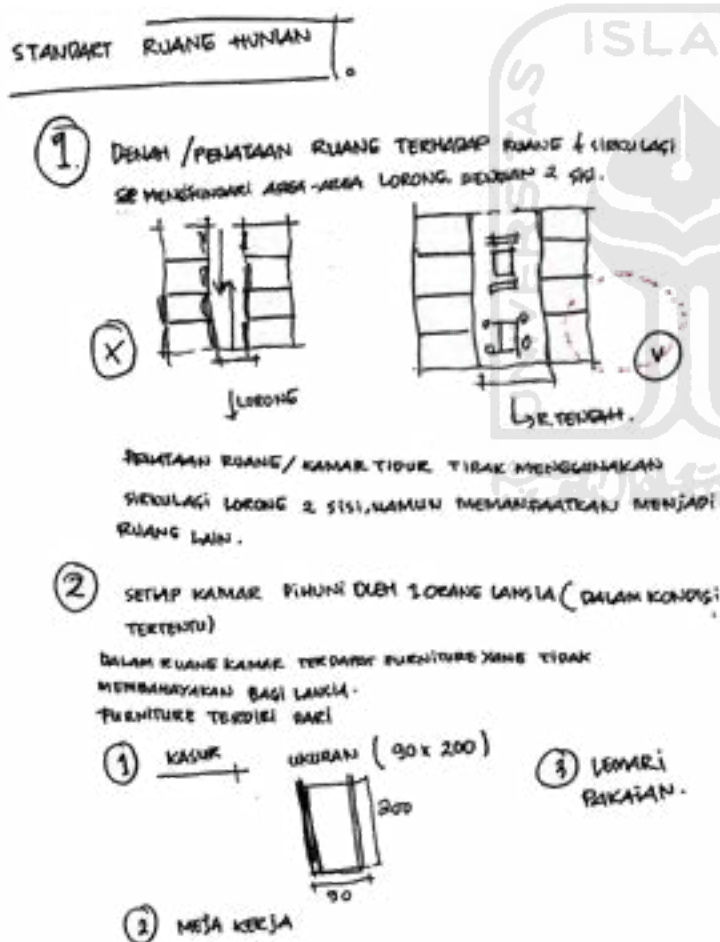 STANDART RUANG HUNIAN
1. DENAH / PENATAAN RUANG TERHADAP RUANG & SIRKULASI
MENGHINDARI AREA-AREA LORONG DENGAN 2 SISI.
X
V
LORONG
R. TENGAH.
PENATAAN RUANG / KAMAR TIDUR TIDAK MENGGUNAKAN
SIRKULASI LORONG 2 SISI, NAMUN MEMANFAATKAN MENJADI
RUANG LAIN.
2 SETIAP KAMAR DIHUNI OLEH 1 ORANG LANSIA ( DALAM KONDISI
TERTENTU)
DALAM RUANG KAMAR TERDAPAT FURNITURE YANG TIDAK
MEMBAHAYAKAN BAGI LANSIA.
FURNITURE TERDIRI DARI
1 KASUR UKURAN ( 90 x 200 )
200
90
3 LEMARI
PAKAIAN.
2 MEJA KERJA
ISLA